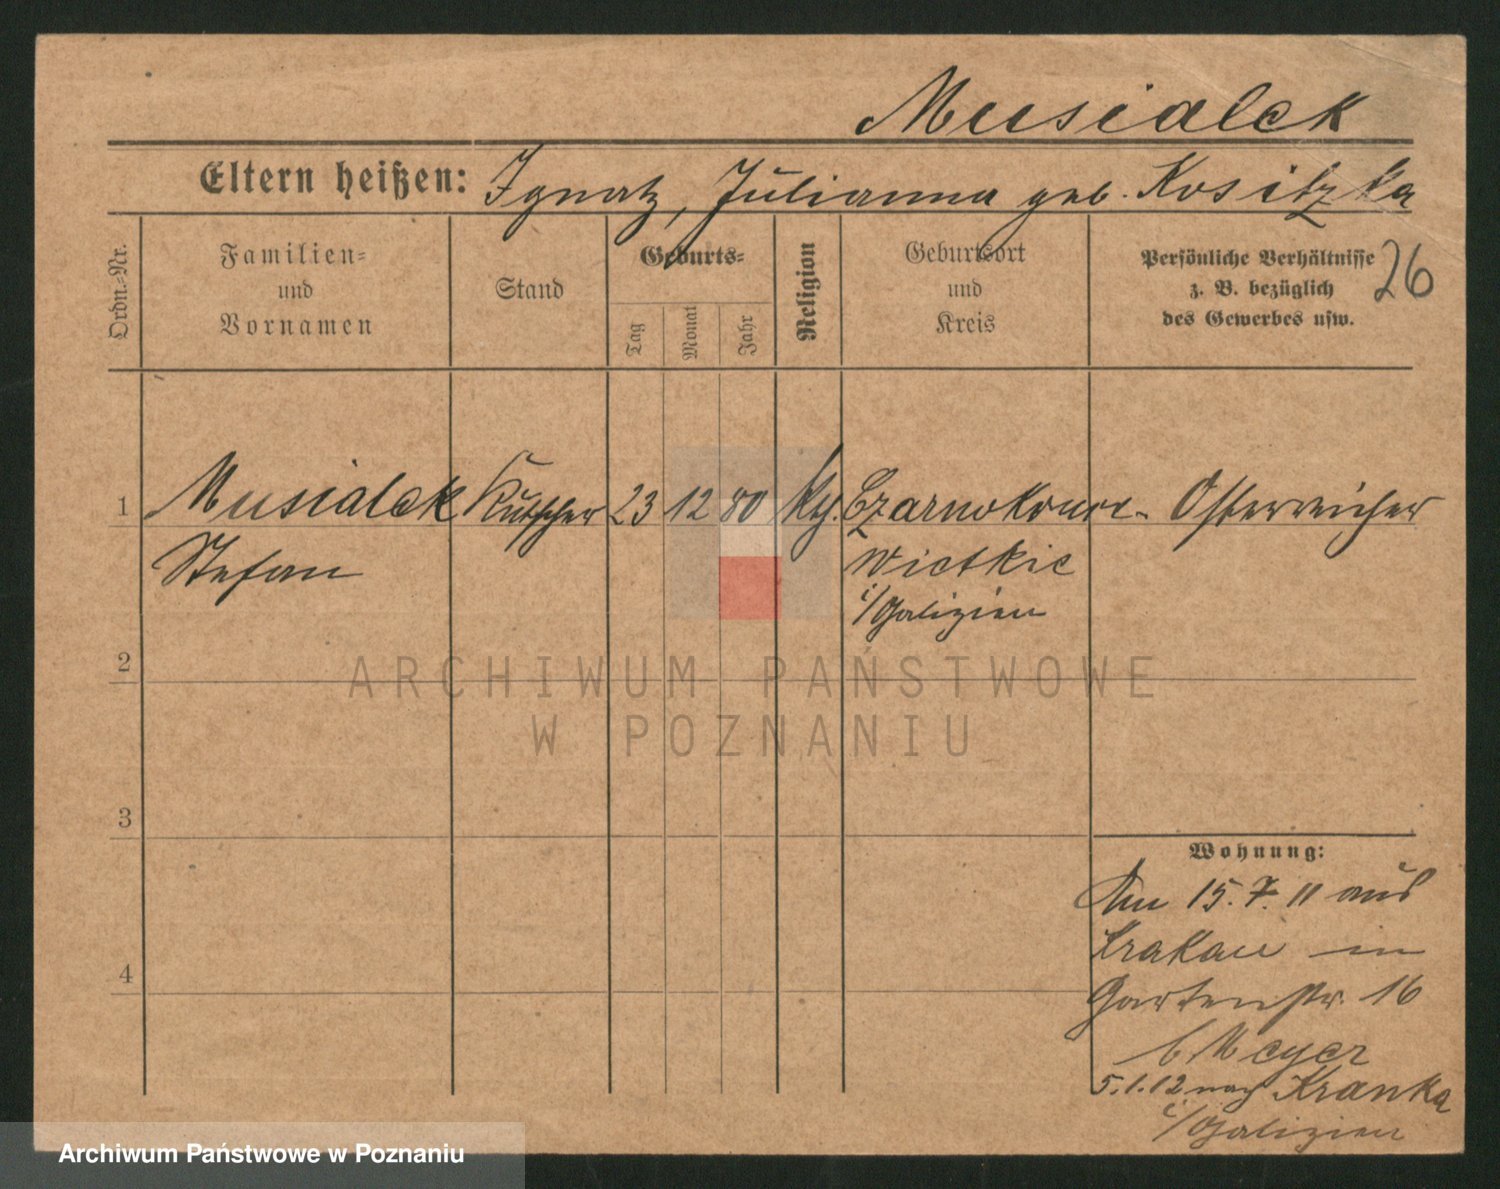 Musialek
Eltern heißen: Ignatz, Julianna geb. Kositzka
Ordn.-Nr.
Familien-
und
Vornamen
Stand
Geburts-
Tag
Monat
Jahr
Religion
Geburtsort
und
Kreis
Persönliche Verhältnisse
z. B. bezüglich
des Gewerbes usw.
26
1 Musialek Kutscher 23 12 80 kth. Czarnokonce- Österreicher
Stefan Wietkie
i/Galizien
2
ARCHIWUM PAŃSTWOWE
W POZNANIU
3
Wohnung:
Am 15.7.11 aus
Krakau in
4 Gartenstr. 16
b Meyer
5.1.12 nach Kranka
i/Galizien
Archiwum Państwowe w Poznaniu